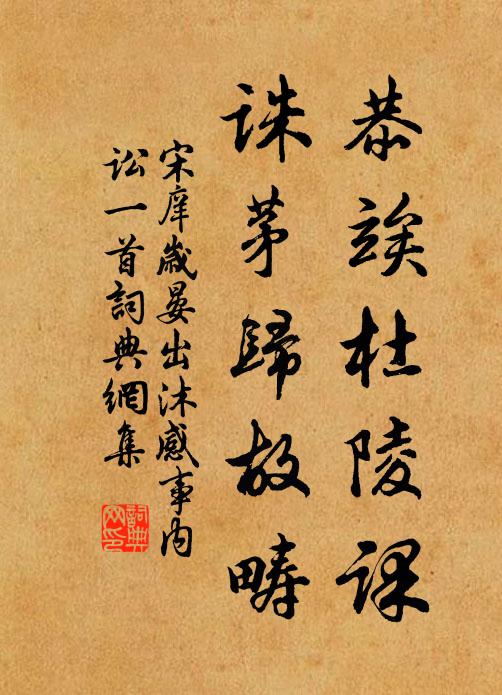 恭竢杜陵課
誅茅歸故疇
宋庠歲晏出沐感事内
訟一首詞典網集
詞典网印